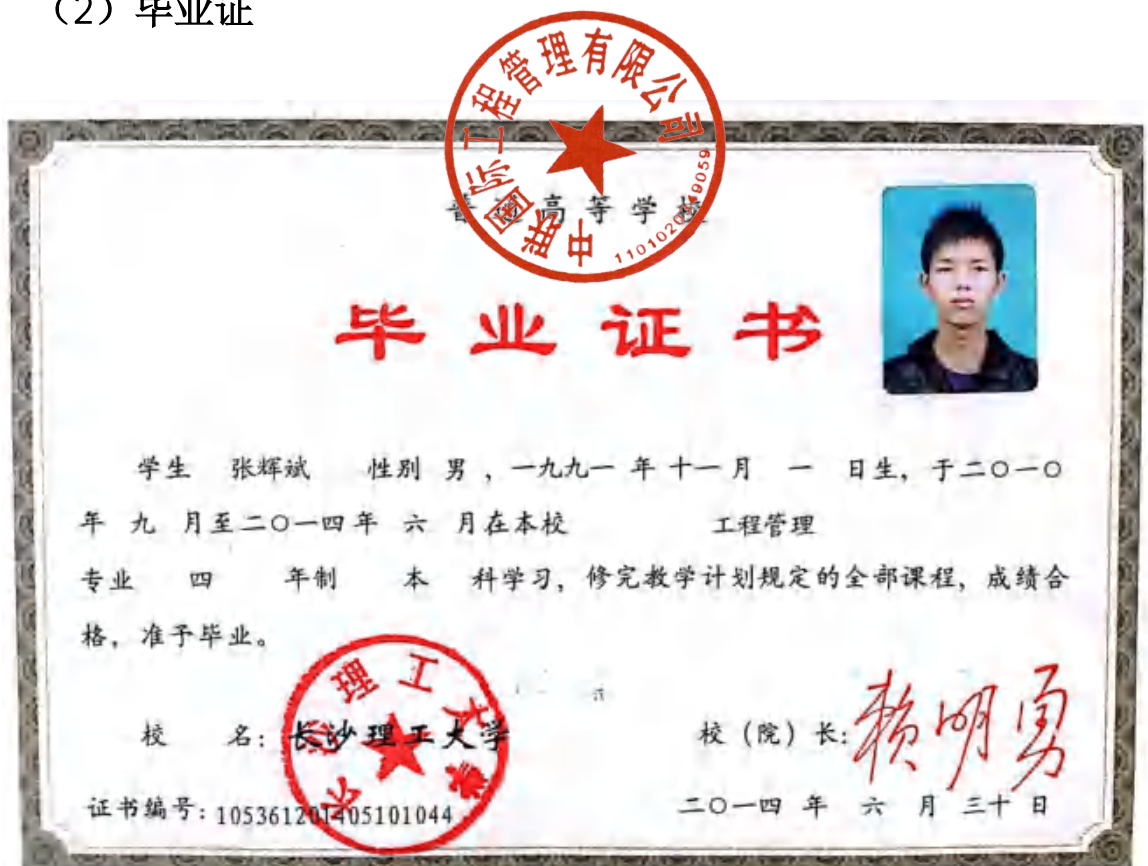 （2）毕业证
中联国际工程管理有限公司
普通高等学校
毕业证书
学生 张辉斌 性别 男 ，一九九一 年 十一 月 一 日生，于二〇一〇
年 九 月至二〇一四年 六 月在本校 工程管理
专业 四 年制 本 科学习，修完教学计划规定的全部课程，成绩合
格，准予毕业。
长沙理工大学
校 名：长沙理工大学 校（院）长：赖明勇
证书编号：105361201405101044 二〇一四 年 六 月 三十 日